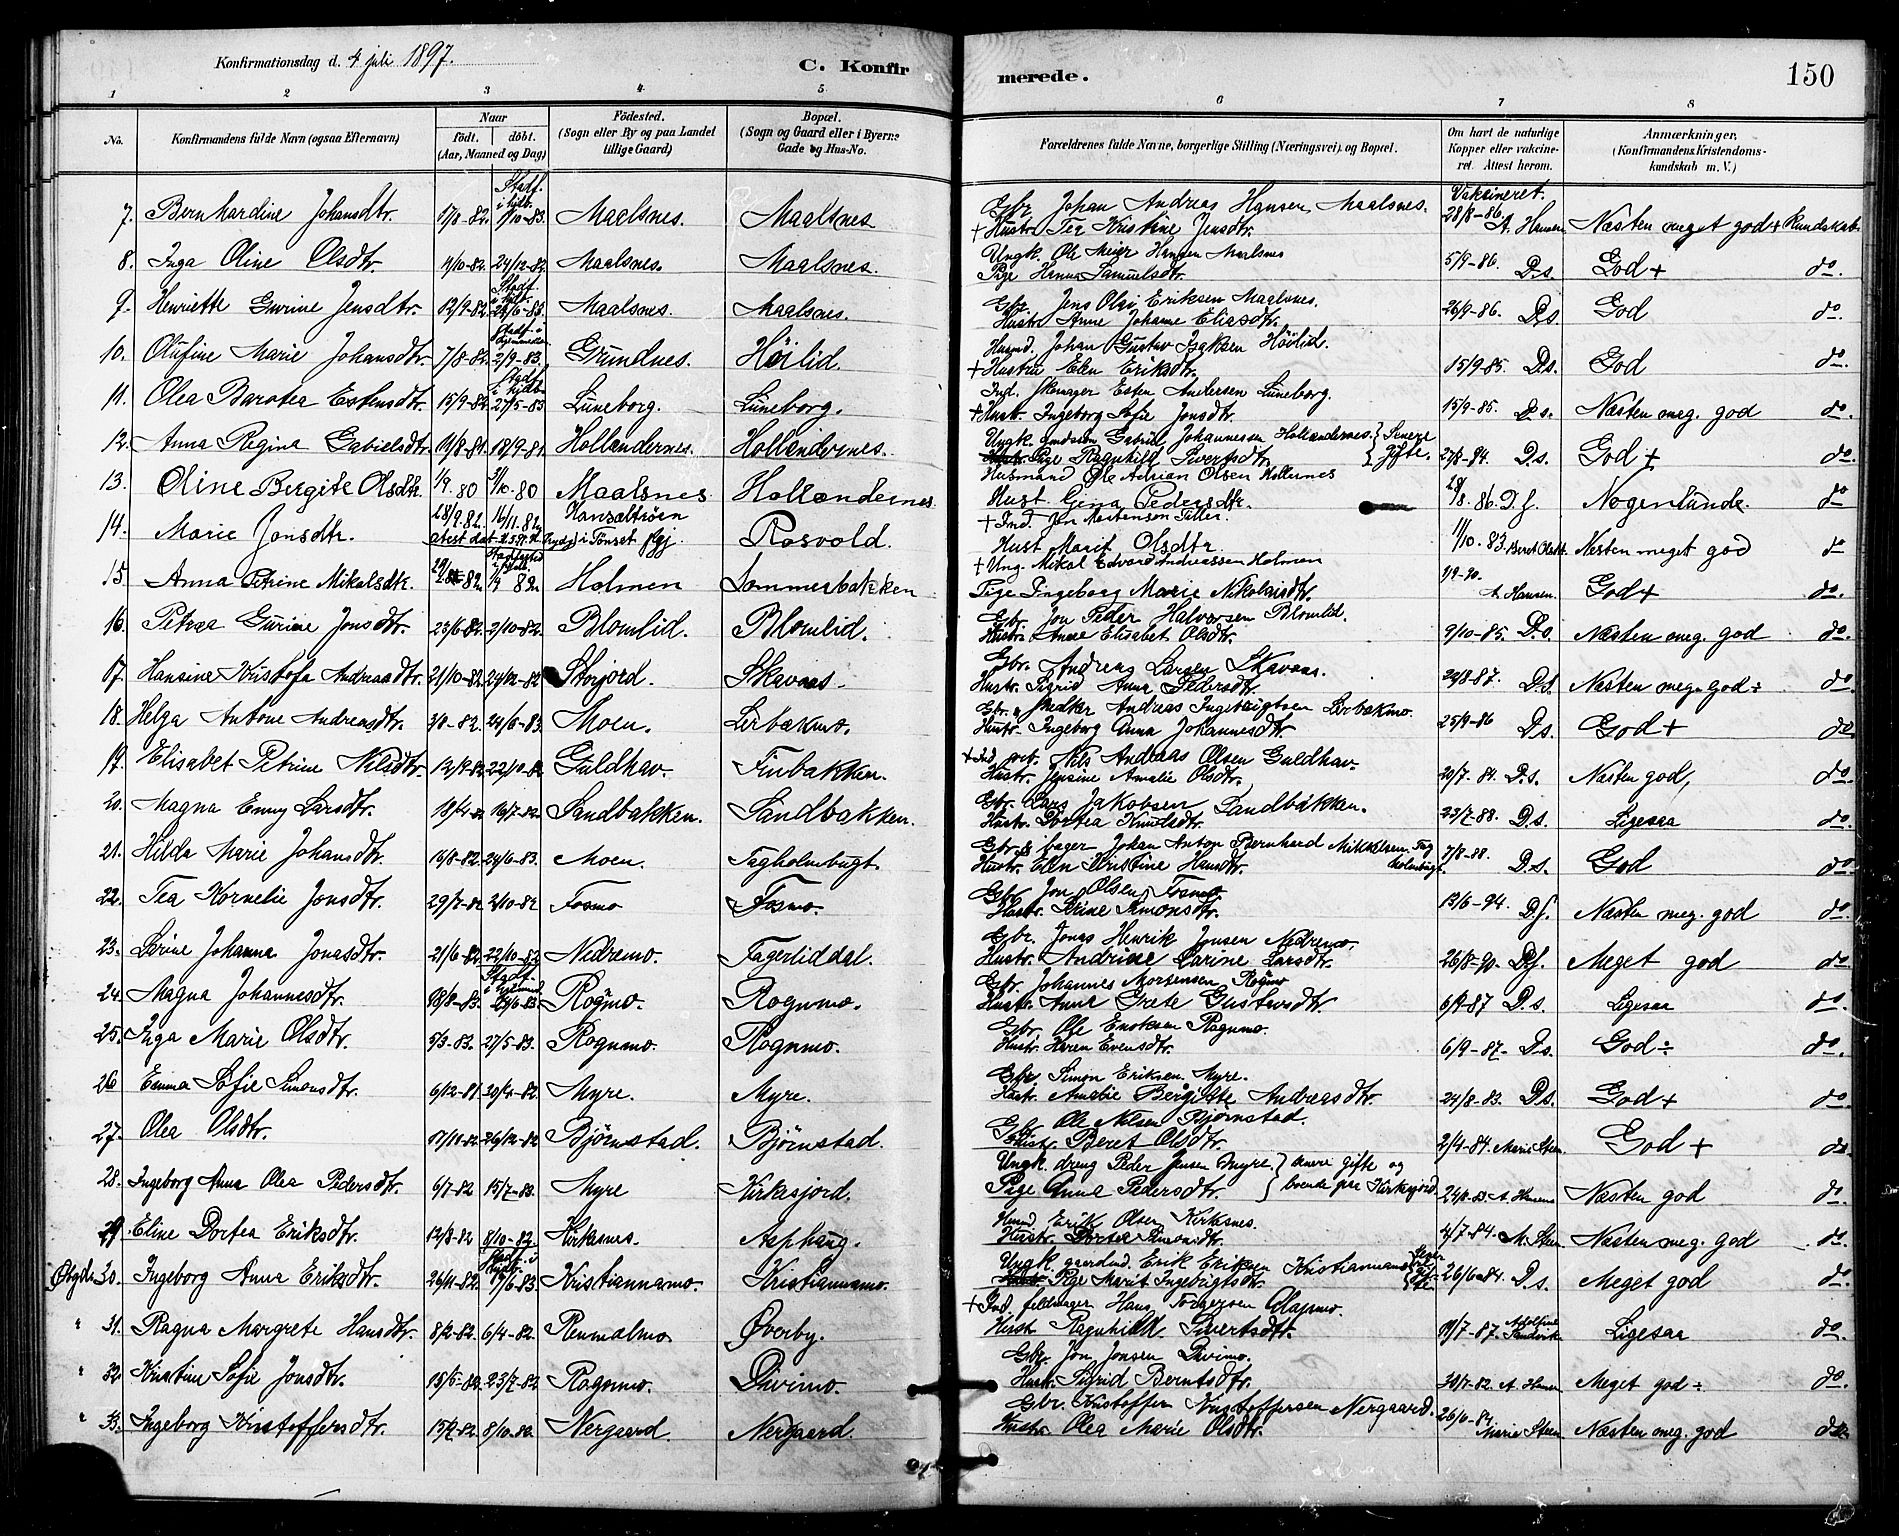 Konfirmationsdag d. 4 juli 1897.
C. Konfir
merede.
150
1 2 3 4 5 6 7 8
No.
Konfirmandens fulde Navn (ogsaa Efternavn)
Naar
födt. döbt.
(Aar, Maaned og Dag)
Födested.
(Sogn eller By og paa Landet
tillige Gaard)
Bopæl.
(Sogn og Gaard eller i Byerne
Gade og Hus-No.
Forældrenes fulde Navne, borgerlige Stilling (Næringsvei) og Bopæl.
Om havt de naturlige
Kopper eller vakcine-
ret. Attest herom.
Anmærkninger.
(Konfirmandens Kristendoms-
kundskab m. V.)
Vakcineret.
7. Bernhardine Johansdtr. 17/8-82. Stadf. i hjkr. 7/10-83. Maalsnes. Maalsnes Gbr. Johan Andreas Hansen Maalsnes. 28/8-86. A. Hansen Næsten meget god + Kundskab.
+ Hustr. Tea Kristine Jensdtr.
8. Inga Oline Olsdtr. 11/10-82. 24/12-82. Maalsnes. Maalsnes. Ungk. Ole Meier Hansen Maalsnes 5/9-86. D.s. God + do.
Pige Hanna Samuelsdtr.
9. Henriette Gurine Jensdtr. 12/9-82. Stadf. 24/6-83. Maalsnes. Maalsnes. Gbr. Jens Olai Eriksen Maalsnes. 26/9-86. D.s. God do.
Hustr. Anne Johanne Eliasdtr.
10. Olufine Marie Johansdtr. 7/8-82. 2/9-83. Grundnes. Höilid. Husmd. Johan Gustav Isaksen Höilid. 15/9-85. D.s. God do.
+ Hustru Elen Eriksdtr.
11. Olea Barotea Estensdtr. 15/9-82. Stadf. 27/5-83 Luneborg. Luneborg. Ind. skomager Esten Andersen Luneborg. 15/9-85. D.s. Næsten meg. god do.
+ Hustr. Ingeborg Sofie Jonsdtr.
12. Anna Regina Gabrielsdtr. 11/8-81. 18/9-81. Hollændernes. Hollændernes. Ungk. Gabriel Johannessen Hollændernes. } Senere 27/8-94. D.s. God + do.
Pige Ragnhild Sivertsdtr. } gifte.
13. Oline Bergite Olsdtr. 1/9 80 31/10. 80 Maalsnes Hollændernes Husmand Ole Adrian Olsen Hollernes 28/8. 86. D.s. Nogenlunde. do
Hust. Gjina Pedersdtr.
14. Marie Jonsdtr. 28/9.82. 16/11. 82. i Tönset Pgj. Rosvold. + Ind. Jon Mortenson Tiller. 11/10. 83. Beret Olsdt Næsten meget god do
Hust Marit Olsdtr.
15. Anna Petrine Mikalsdtr. 82. 1/9 82. Holmen Sommerbakken + Ung. Mikal Edvard Andreassen Holmen 1/9-90. A. Hansen. God + do.
Pige Ingeborg Marie Nikolaisdtr.
16. Petra Gurine Jonsdtr. 23/6-82. 2/10-82. Blomlid. Blomlid. Gbr. Jon Peder Halvorsen Blomlid. 9/10-85. D.s. Næsten meg. god do.
Hustr. Anne Elisabet Olsdtr.
17. Hansina Kristofa Andreasdtr. 21/10-82. 29/12-82 Storjord. Skavaas. Gbr. Andreas Larsen Skavaas. 29/8-87. D.s. Næsten meg. god ÷ do.
Hustr. Sigrid Anna Pedersdtr.
18. Helga Antone Andreasdtr. 3/11-82. 24/6-83. Moen. Lerbakmo. Gbr. & smed Andreas Ingebrigtsen Lerbakmo. 25/9-86 D.s. God + do
Hustr. Ingeborg Anna Johannesdtr.
19. Elisabet Petrine Nilsdtr. 12/9-82 22/10-82 Guldhav. Finbakken. + Ind. Nils Andreas Olsen Guldhav. 20/7. 84. D.s. Næsten god, do.
Hustr. Jensine Amalie Olsdtr.
20. Magna Emmy Larsdtr. 18/4-82 16/7-82. Sandbakken. Sandbakken. Gbr. Lars Jakobsen Sandbakken. 23/7-88. D.s. Ligesaa do.
Hustr. Dortea Knudsdtr.
21. Hilda Marie Johansdtr. 16/8-82. 24/6-83. Moen. Fagholmbugt. Gbr. & bager Johan Anton Bernhard Mikkelsen Fag- 7/8-88. D.s. God do.
Hustr. Elen Kristine Hansdtr. holmbugt.
22. Tea Kornelie Jonsdtr. 29/7-82 2/10-82 Fosmo Fosmo. Gbr. Jon Olsen Fosmo 13/6-94. D.s. Næsten meg. god do.
Hustr. Stine Simonsdtr.
23. Lovine Johanna Jonasdtr. 21/6-82 22/10-82 Nedremo. Fagerliddal. Gbr. Jonas Henrik Jonsen Nedremo. 26/8-90. D.s. Meget god do.
Hustr. Andrine Larine Larsdtr.
24. Magna Johannesdtr. 18/8-83. 24/6-83. Rognmo. Rognmo. Gbr. Johannes Mortensen Rognmo 6/9-87 D.s. Ligesaa do.
Hustr. Anna Grete Gustavsdtr.
25. Inga Marie Olsdtr. 5/3-83. 27/5-83. Rognmo. Rognmo. Gbr. Ole Enoksen Rognmo. 6/9-87- D.s. God ÷ do.
Hustr. Karen Evensdtr.
26 Emma Sofie Simonsdtr. 6/12-81. 20/4-82. Myre. Myre. Gbr Simon Eriksen Myre. 24/8-83. D.s. God + do.
Hustr. Amalie Bergitte Andreasdtr.
27. Olea Olsdtr. 17/11-82 26/12-82 Björnstad. Björnstad. Gbr Ole Nilsen Bjørnstad. 2/4-84. Marie Steen. God + do.
Hustr. Beret Olsdtr.
28. Ingeborg Anna Olea Pedersdtr. 6/7-82 15/7-83. Myre Kirkesjord. Ungk. dreng Peder Jensen Myre. } senere gifte og 24/8-83. A. Hansen Næsten god do.
Pige Anna Pedersdtr. } boende paa Kirkesjord.
29. Eline Dortea Eriksdtr. 12/8-82 8/10-82. Kirkesnes. Asphaug. Husmd. Erik Olsen Kirkesnes. 4/7-84. M. Steen Næsten meg. god do.
Hustr. Dortea Simonsdtr.
30. Ingeborg Anna Eriksdtr. 26/11-82. 17/6-83. Kristiannamo. Kristiannamo. Ungk. gaardmd. Erik Eriksen Kristiannamo 26/6-84. D.s. Meget god do.
Pige Marit Ingebrigtsdtr.
" 31. Ragna Margrete Hansdtr. 8/2-82. 6/4-82. Renmalmo Øverby. + Ind. feldmager Hans Torgersen Olapmo. 19/7-87. Adolfine Sandvik Ligesaa do
Hustr. Ragnhild Sivertsdtr.
" 32. Kristine Sofie Jonsdtr. 15/5-82. 23/7-82 Rognmo. Divimo. Gbr. Jon Jonsen Divimo. 30/7-82. A. Hansen Meget god ÷ do.
Hustr. Sigrid Berntsdtr.
" 33. Ingeborg Kristoffersdtr. 15/2-82 8/10-82. Nergaard. Nergaard. Gbr. Kristoffer Kristoffersen Nergaard. 26/6-84. Marie Steen Næsten meg. god do.
Hustr. Olea Marie Olsdtr.